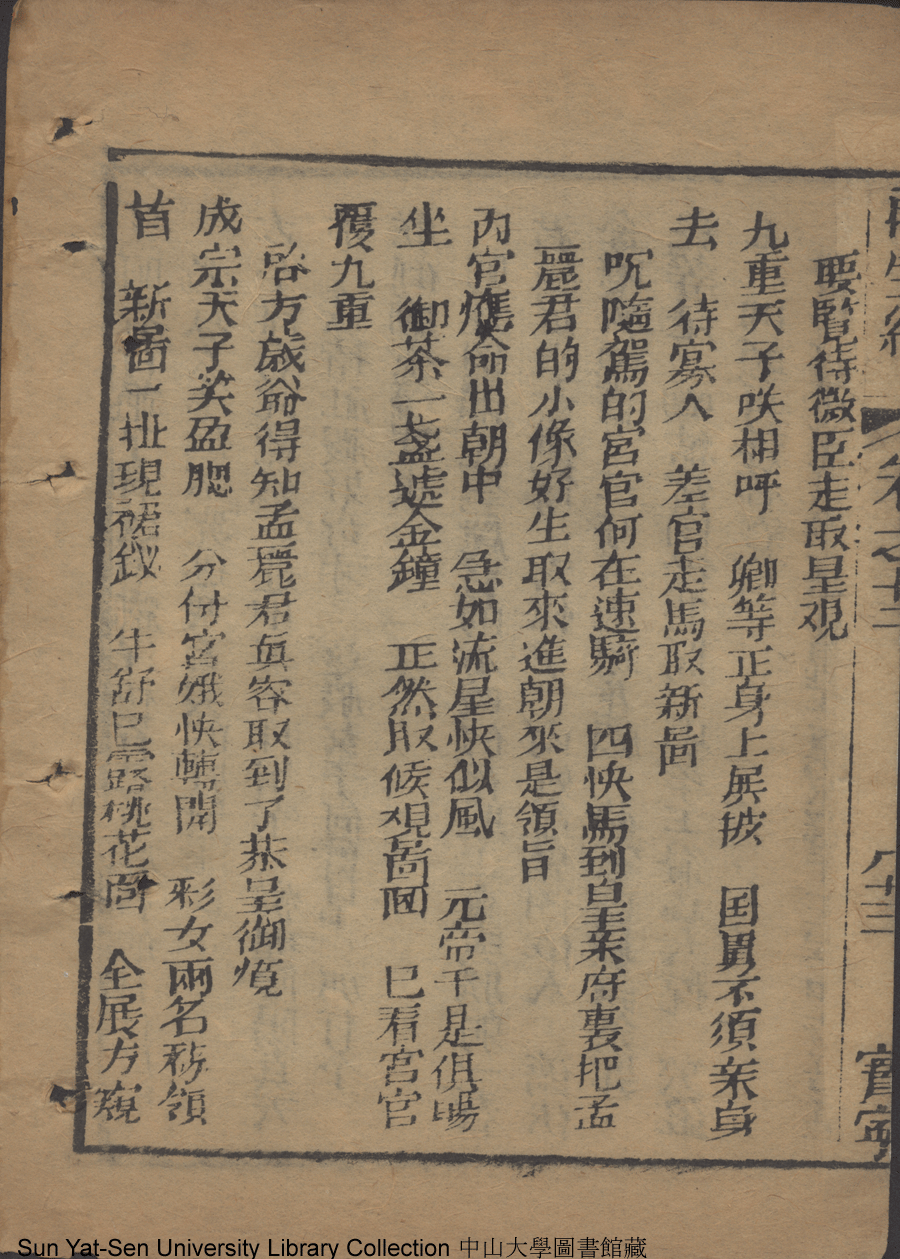 再生緣 卷之十三 八十三 寶寧
要覽待微臣走取呈观
九重天子咲相呼 卿等正身上展披 国舅不須亲身
去 待寡人 差官走馬取新啚
呪隨駕的宮官何在速騎 四快馬到皇亲府裏把孟
麗君的小像好生取來進朝來是領旨
內官應命出朝中 急如流星快似風 元帝于是俱賜
坐 御茶一盞遞金鐘 正然取候观啚囬 已看宮官
覆九重
啟万歲爺得知孟麗君真容取到了恭呈御覧
成宗天子笑盈腮 分付宮娥快轉開 彩女兩名務領
首 新啚一扯現裙釵 半舒已露桃花面 全展方窺
Sun Yat-Sen University Library Collection 中山大學圖書館藏